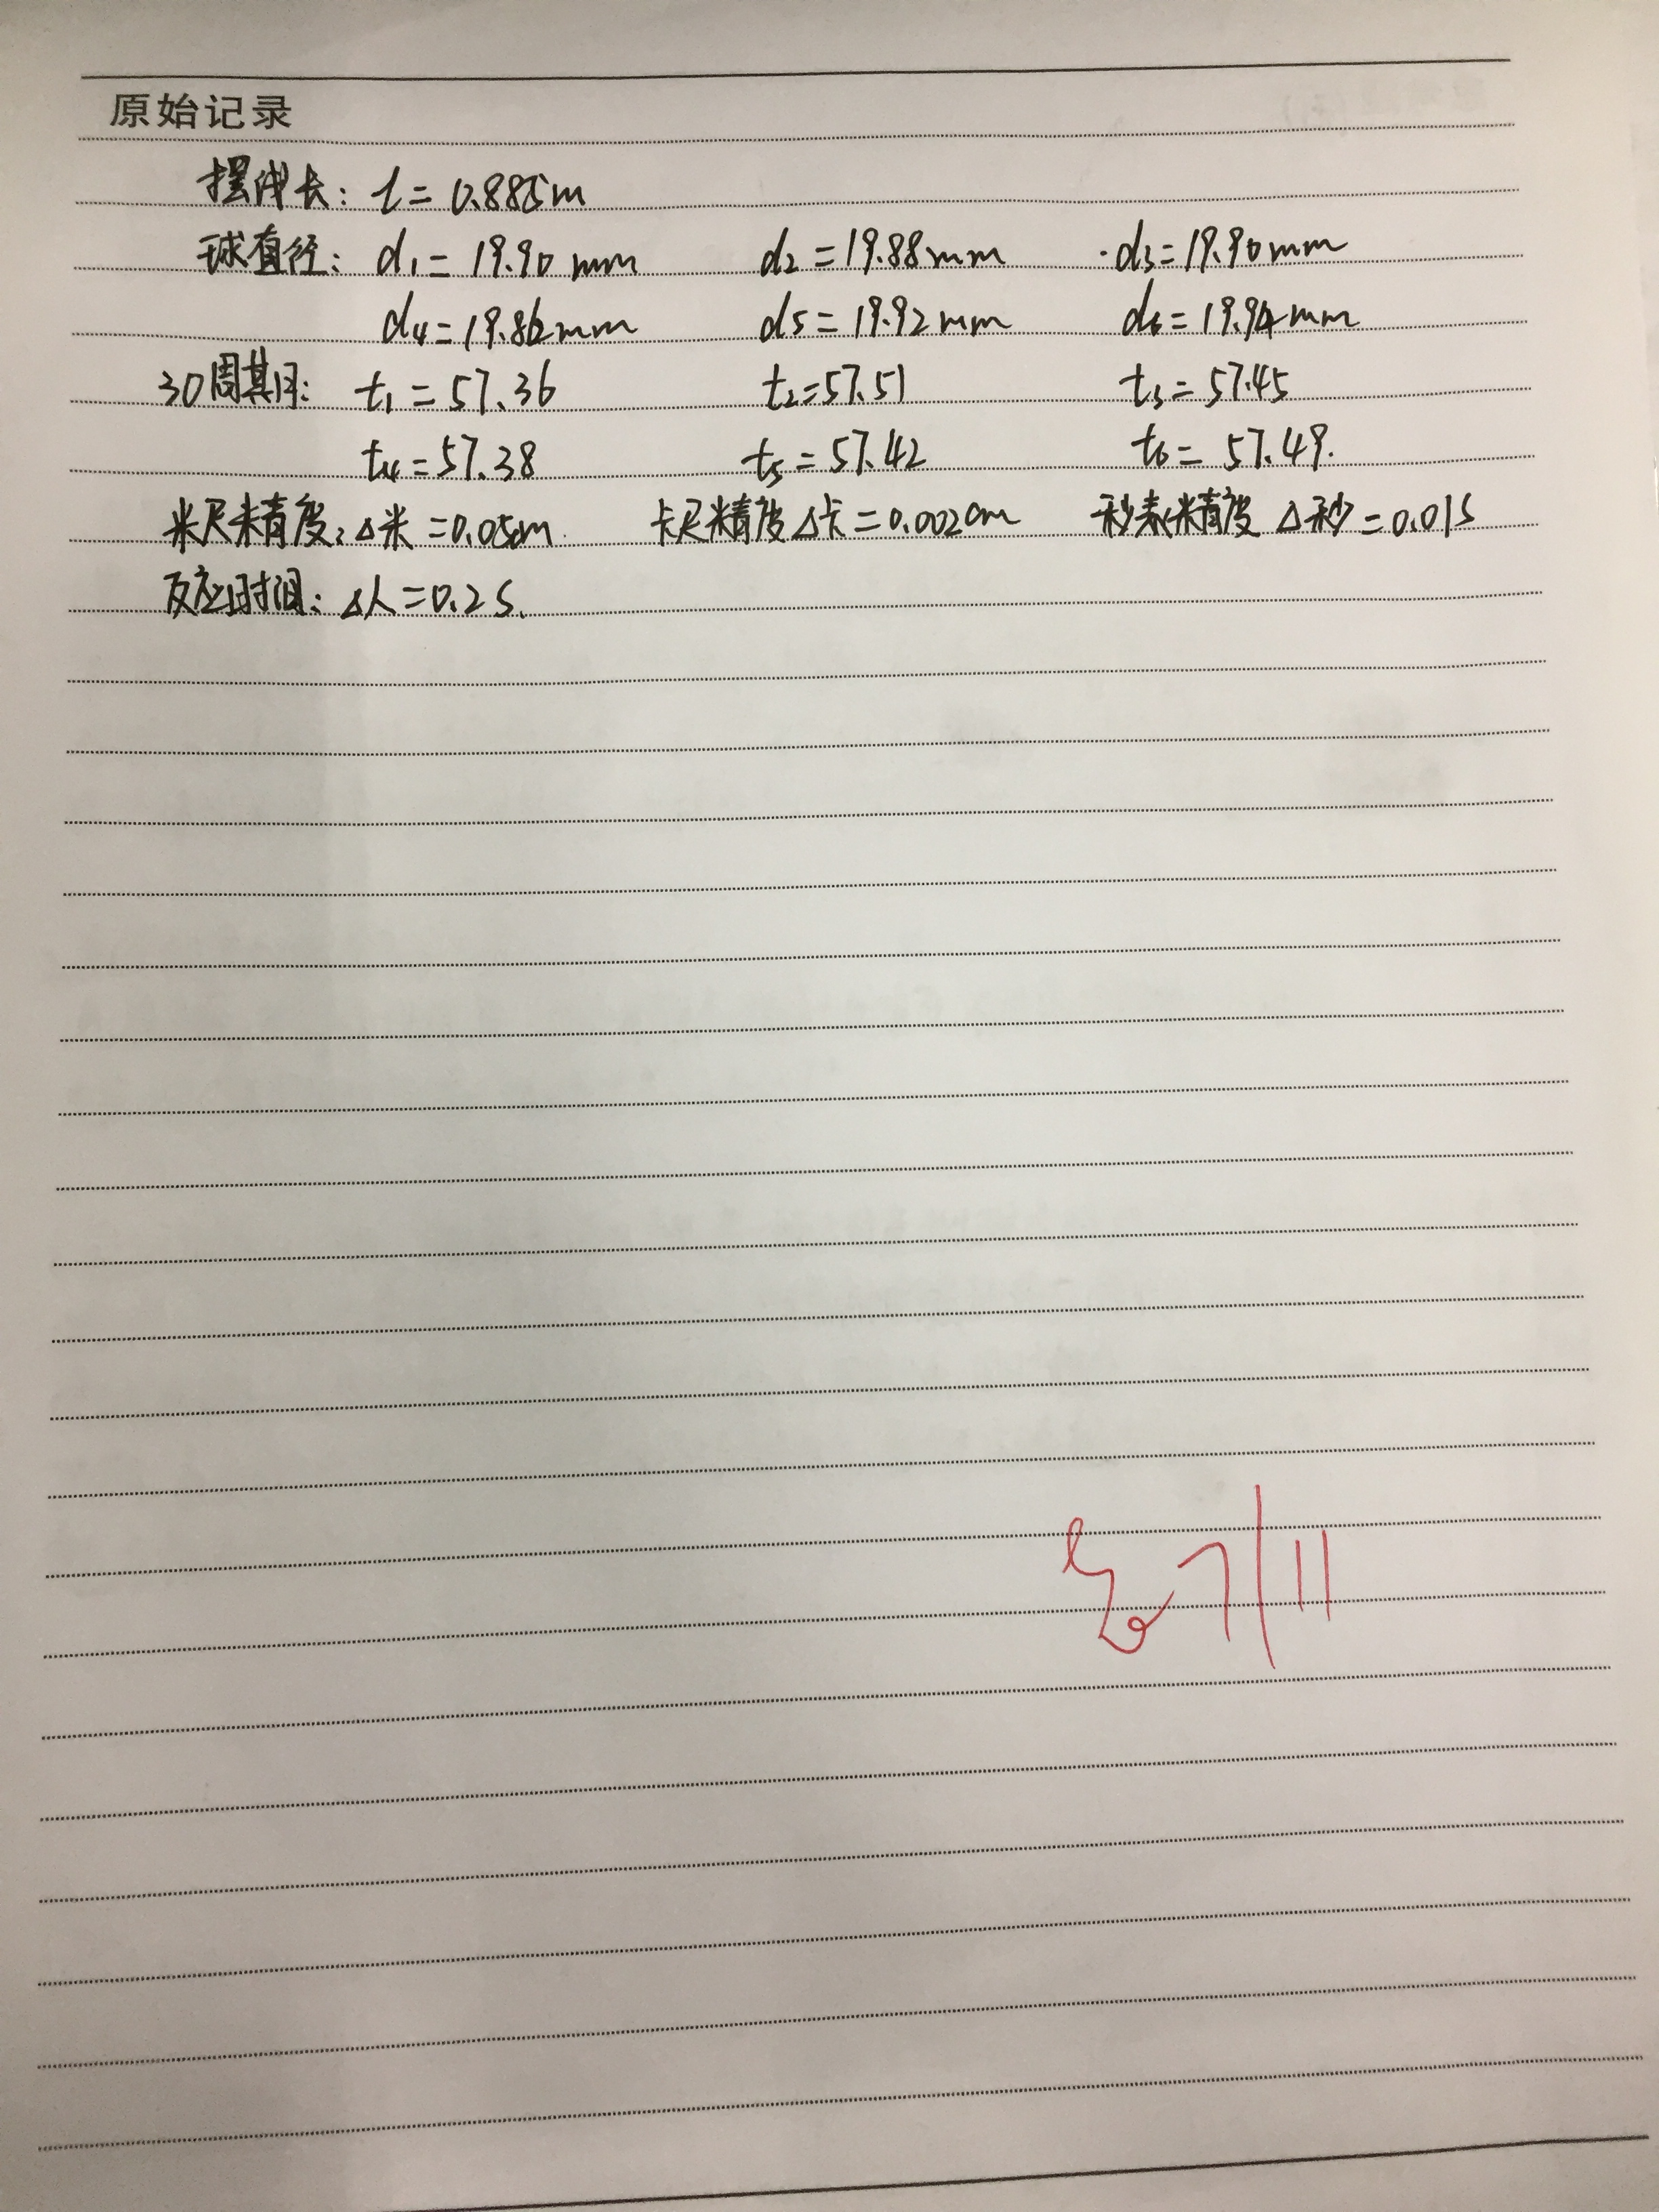 原始记录
摆线长: l = 0.885m
球直径: d₁ = 19.90 mm d₂ = 19.88mm d₃ = 19.90mm
d₄ = 19.86mm d₅ = 19.92mm d₆ = 19.94mm
30周期: t₁ = 57.36 t₂ = 57.51 t₃ = 57.45
t₄ = 57.38 t₅ = 57.42 t₆ = 57.49.
米尺精度: Δ米 = 0.05cm. 卡尺精度 Δ卡 = 0.002cm 秒表精度 Δ秒 = 0.01s
反应时间: Δ人 = 0.2s.
7/11